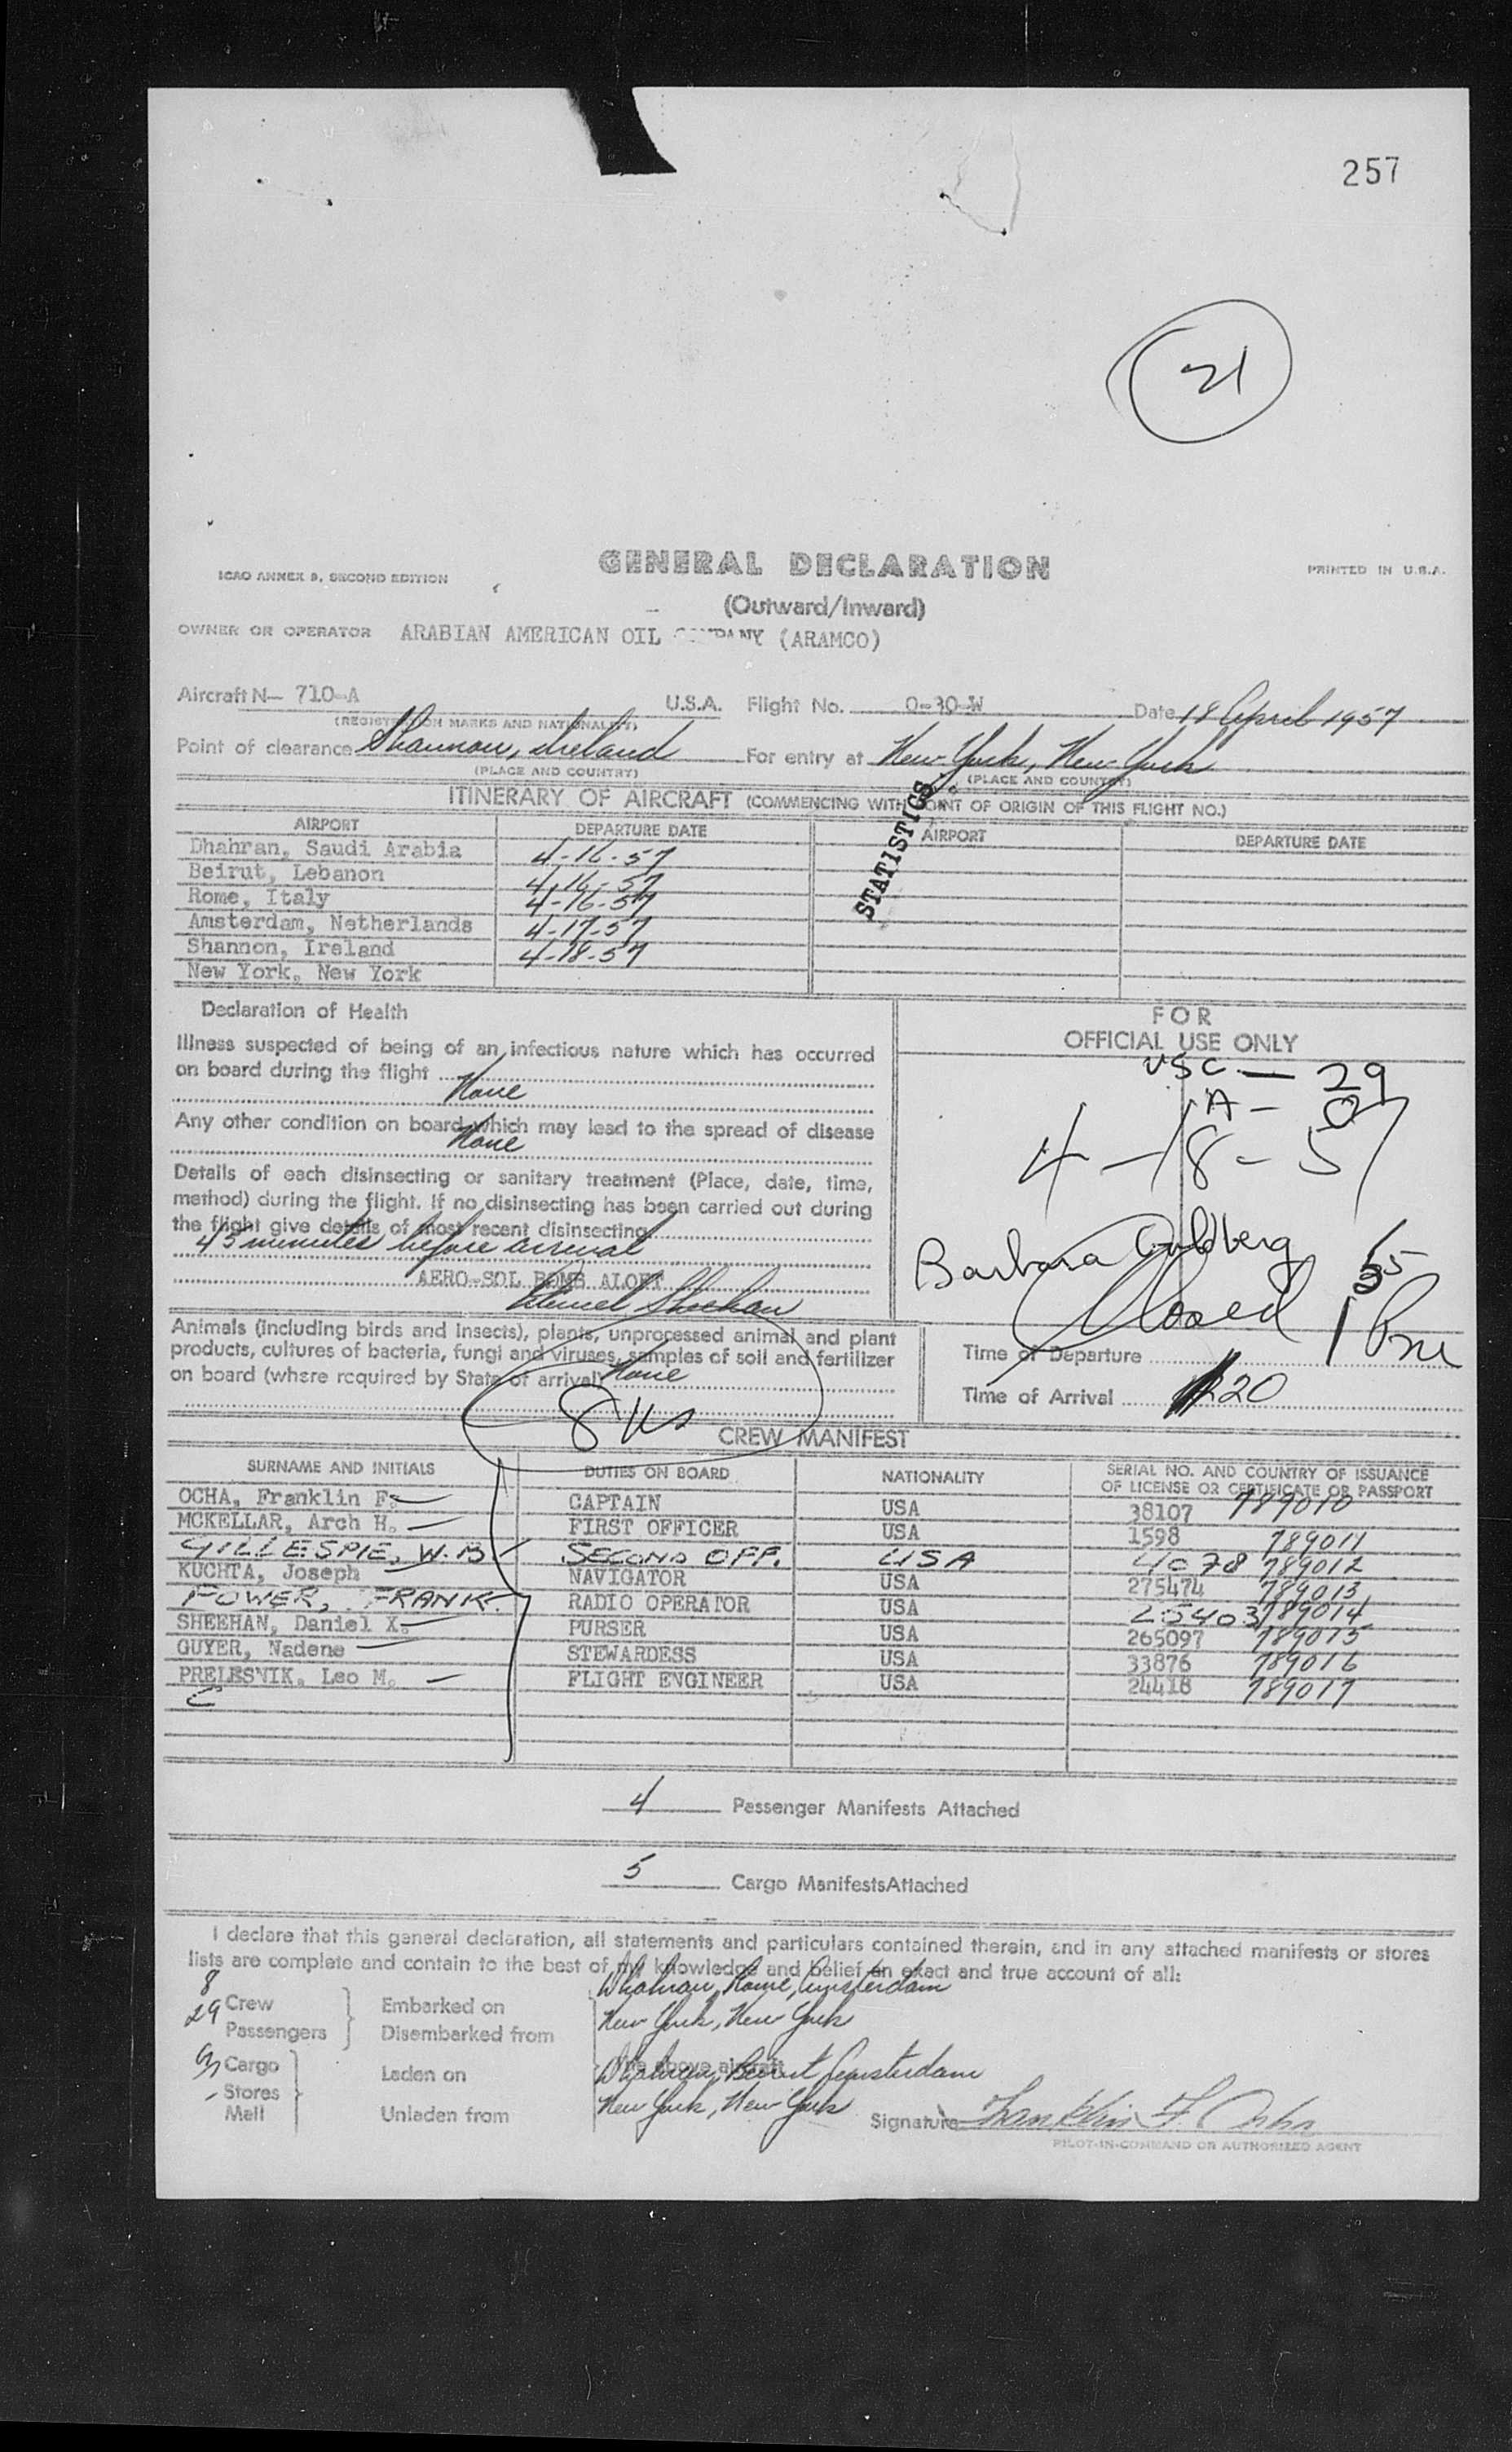 257
21
GENERAL DECLARATION
ICAO ANNEX 9, SECOND EDITION
PRINTED IN U.S.A.
(Outward/Inward)
OWNER OR OPERATOR ARABIAN AMERICAN OIL COMPANY (ARAMCO)
Aircraft N- 710-A U.S.A. Flight No. O-30-W Date 18 April 1957
(REGISTRATION MARKS AND NATIONALITY)
Point of clearance Shannon, Ireland For entry at New York, New York
(PLACE AND COUNTRY) (PLACE AND COUNTRY)
STATISTICS
ITINERARY OF AIRCRAFT (COMMENCING WITH POINT OF ORIGIN OF THIS FLIGHT NO.)
AIRPORT DEPARTURE DATE AIRPORT DEPARTURE DATE
Dhahran, Saudi Arabia 4-16-57
Beirut, Lebanon 4-16-57
Rome, Italy 4-16-57
Amsterdam, Netherlands 4-17-57
Shannon, Ireland 4-18-57
New York, New York
Declaration of Health
Illness suspected of being of an infectious nature which has occurred
on board during the flight
None
Any other condition on board which may lead to the spread of disease
None
Details of each disinsecting or sanitary treatment (Place, date, time,
method) during the flight. If no disinsecting has been carried out during
the flight give details of most recent disinsecting
45 minutes before arrival
AERO-SOL BOMB ALOFT
Daniel Sheehan
Animals (including birds and insects), plants, unprocessed animal and plant
products, cultures of bacteria, fungi and viruses, samples of soil and fertilizer
on board (where required by State of arrival) None
8 us
FOR
OFFICIAL USE ONLY
USC - 29
A - 0
4-18-57
Barbara Goldberg
Closed
55
1 Pm
Time of Departure
Time of Arrival 1220
CREW MANIFEST
SURNAME AND INITIALS DUTIES ON BOARD NATIONALITY SERIAL NO. AND COUNTRY OF ISSUANCE
OF LICENSE OR CERTIFICATE OR PASSPORT
OCHA, Franklin F. CAPTAIN USA 38107 789010
MCKELLAR, Arch H. FIRST OFFICER USA 1598 789011
GILLESPIE, W.B. SECOND OFF. USA 4078 789012
KUCHTA, Joseph NAVIGATOR USA 275474 789013
POWER, FRANK RADIO OPERATOR USA 25403 789014
SHEEHAN, Daniel X. PURSER USA 265097 789015
GUYER, Nadene STEWARDESS USA 33876 789016
PRELESNIK, Leo M. FLIGHT ENGINEER USA 24418 789017
C
4 Passenger Manifests Attached
5 Cargo Manifests Attached
I declare that this general declaration, all statements and particulars contained therein, and in any attached manifests or stores
lists are complete and contain to the best of my knowledge and belief an exact and true account of all:
8 Crew Embarked on Dhahran, Rome, Amsterdam
29 Passengers Disembarked from New York, New York
the above aircraft
Cargo Laden on Dhahran, Beirut Amsterdam
Stores
Mail Unladen from New York, New York
Signature Franklin F. Ocha
PILOT-IN-COMMAND OR AUTHORIZED AGENT